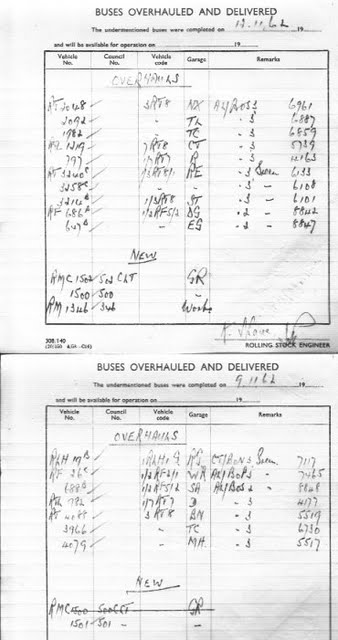 BUSES OVERHAULED AND DELIVERED
The undermentioned buses were completed on 12.11.62 19
and will be available for operation on 19
Vehicle No. Council No. Vehicle code Garage Remarks
OVERHAULS
RT 2048 3RT8 AX/BOS 3 6961
2092 - TL - 3 6887
1982 - TC - 3 6859
1219 7RT8 CT - 3 5739
797 1/7RT7 R - 3
RT 3240 RE - 3 Green 6133
3258 - - 3 - 6108
1/3RT8 ST - 3 - 6101
RF 686 1/2RF5/2 DG - 2 - 8842
647 - EG - 2 - 8847
NEW
RMC 1502 502 CLT GR
1500 500 -
RM 1346 346 Works
308.140 ROLLING STOCK ENGINEER
BUSES OVERHAULED AND DELIVERED
The undermentioned buses were completed on 9.11.62 19
and will be available for operation on 19
Vehicle No. Council No. Vehicle code Garage Remarks
OVERHAULS
RLH 17 RG Green 7117
RF 26 WR 7465
688 1/2RF5/2 SA AX/BOS 2 - 8848
792 1/7RT7 B - 3 4177
RT 4088 3RT8 BN - 3 5519
3966 - TC - 3 6730
4079 - MH - 3 5517
NEW
RMC 1500 500 CLT GR
1501 501 - -